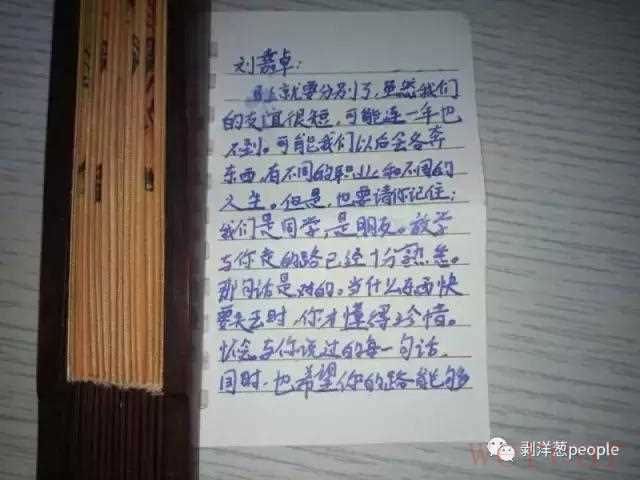 刘嘉卓：
马上就要分别了，虽然我们
的友谊很短，可能连一年也
不到。可能我们以后会各奔
东西，有不同的职业和不同的
人生。但是，也要请你记住：
我们是同学，是朋友。放学
与你走的路已经十分熟悉。
那句话是对的。当什么东西快
要失去时，你才懂得珍惜。
怀念与你说过的每一句话，
同时，也希望你的路能够
剥洋葱people